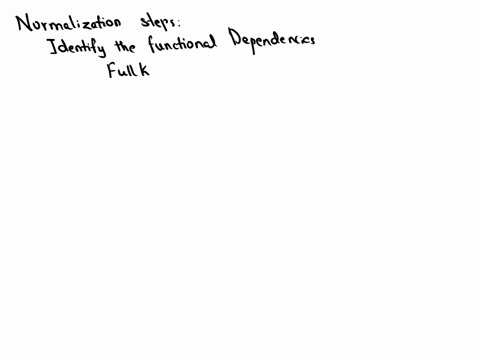 Normalization steps:
Identify the functional Dependencies
Full k